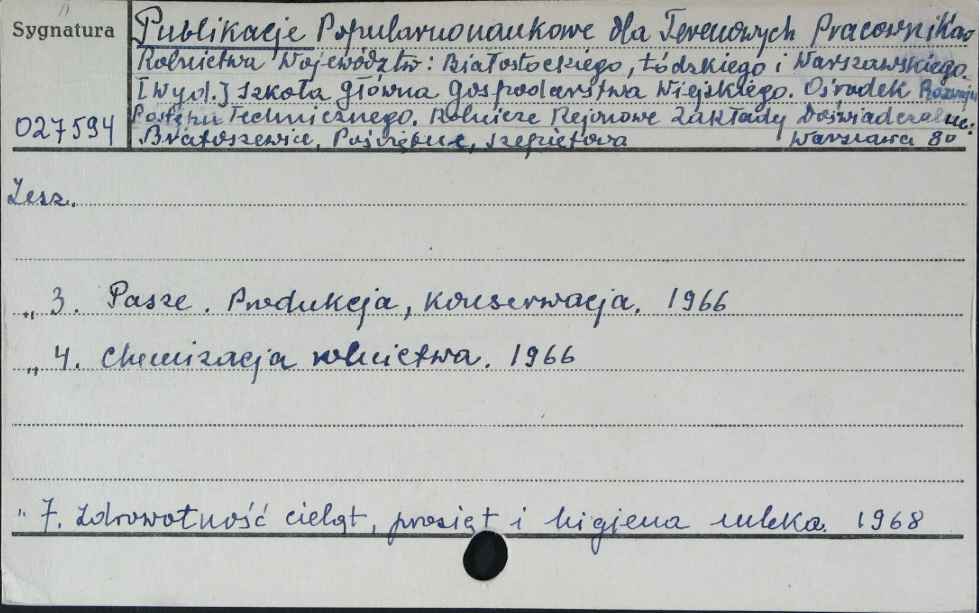 Sygnatura
Publikacje Popularnonaukowe dla Terenowych Pracowników
Rolnictwa Województw: Białostockiego, Łódzkiego i Warszawskiego.
[Wyd.] Szkoła Główna Gospodarstwa Wiejskiego. Ośrodek Rozwoju
027594 Postępu Technicznego. Rolnicze Rejonowe Zakłady Doświadczalne:
Bratoszewice, Poświętne, Szepietowo Warszawa 80
Zesz.
„ 3. Pasze. Produkcja, konserwacja. 1966
„ 4. Chemizacja rolnictwa. 1966
„ 7. Zdrowotność cieląt, prosiąt i higjena mleka. 1968